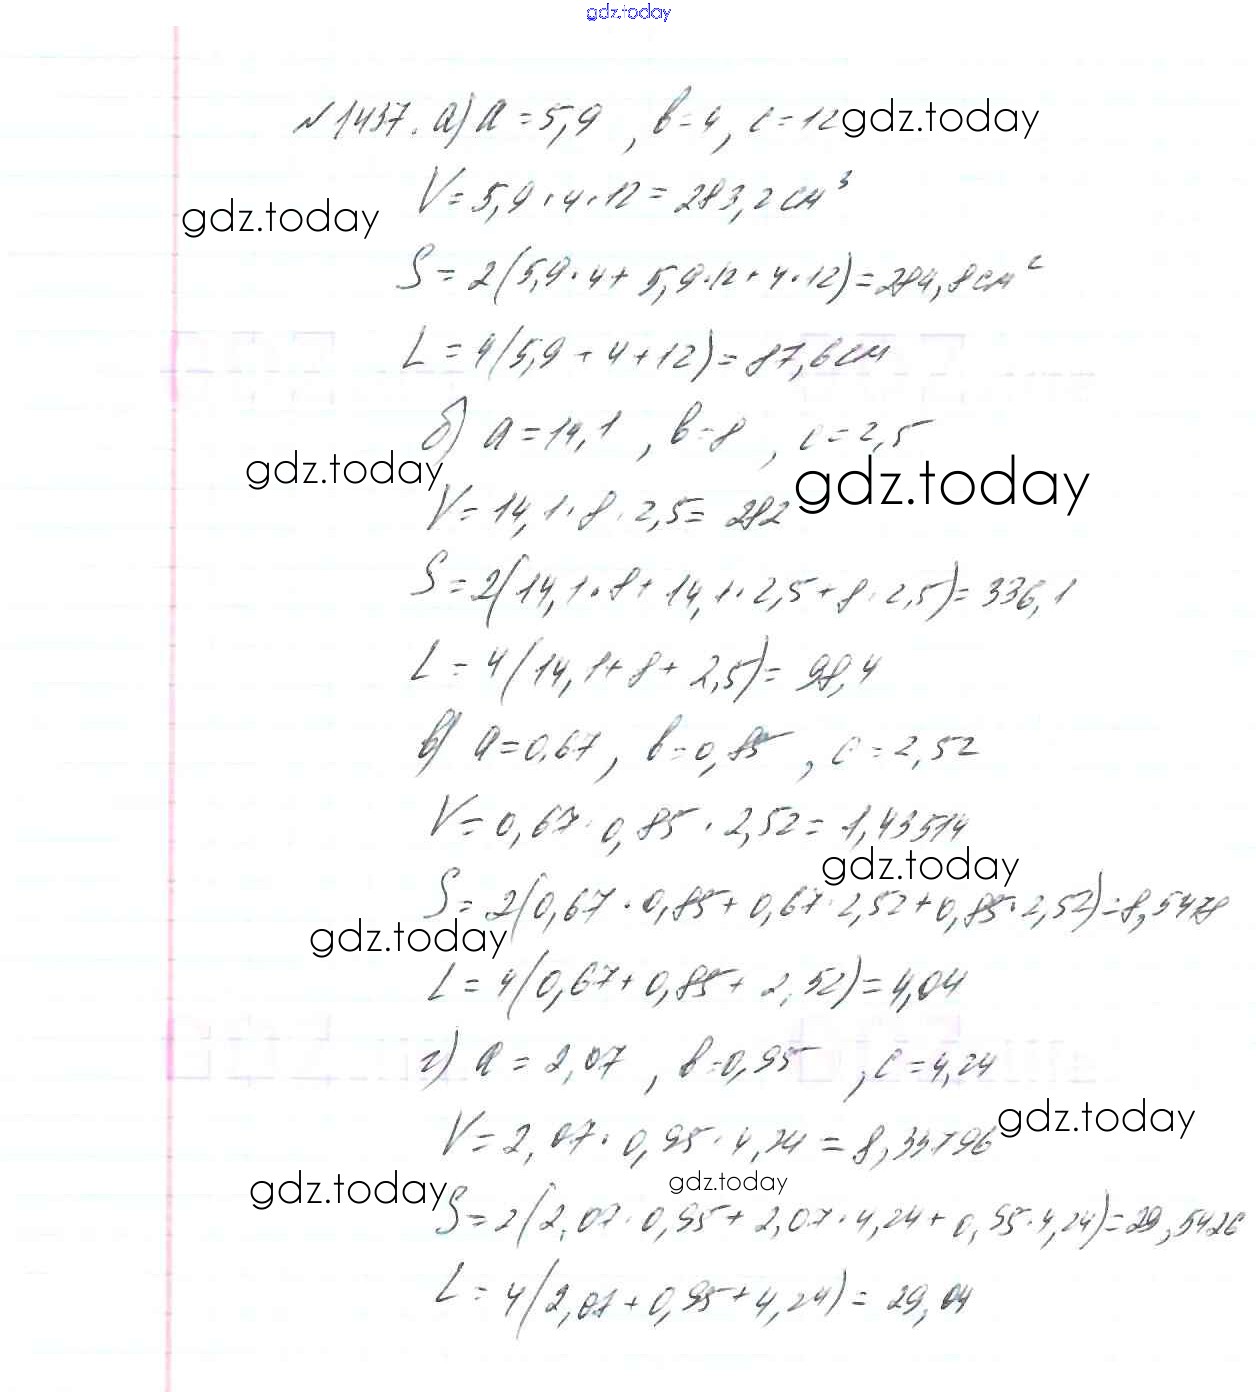 gdz.today
№1437. а) a = 5,9 , b = 4, c = 12 gdz.today
V = 5,9 · 4 · 12 = 283,2 см³
gdz.today
S = 2(5,9 · 4 + 5,9 · 12 + 4 · 12) = 284,8 см²
L = 4(5,9 + 4 + 12) = 87,6 см
б) a = 14,1 , b = 8 , c = 2,5
gdz.today
gdz.today
V = 14,1 · 8 · 2,5 = 282
S = 2(14,1 · 8 + 14,1 · 2,5 + 8 · 2,5) = 336,1
L = 4(14,1 + 8 + 2,5) = 98,4
в) a = 0,67 , b = 0,85 , c = 2,52
V = 0,67 · 0,85 · 2,52 = 1,43514
gdz.today
S = 2(0,67 · 0,85 + 0,67 · 2,52 + 0,85 · 2,52) = 8,5478
gdz.today
L = 4(0,67 + 0,85 + 2,52) = 4,04
г) a = 2,07 , b = 0,95 , c = 4,24
gdz.today
V = 2,07 · 0,95 · 4,24 = 8,33796
gdz.today
gdz.today
S = 2(2,07 · 0,95 + 2,07 · 4,24 + 0,95 · 4,24) = 29,5426
L = 4(2,07 + 0,95 + 4,24) = 29,04